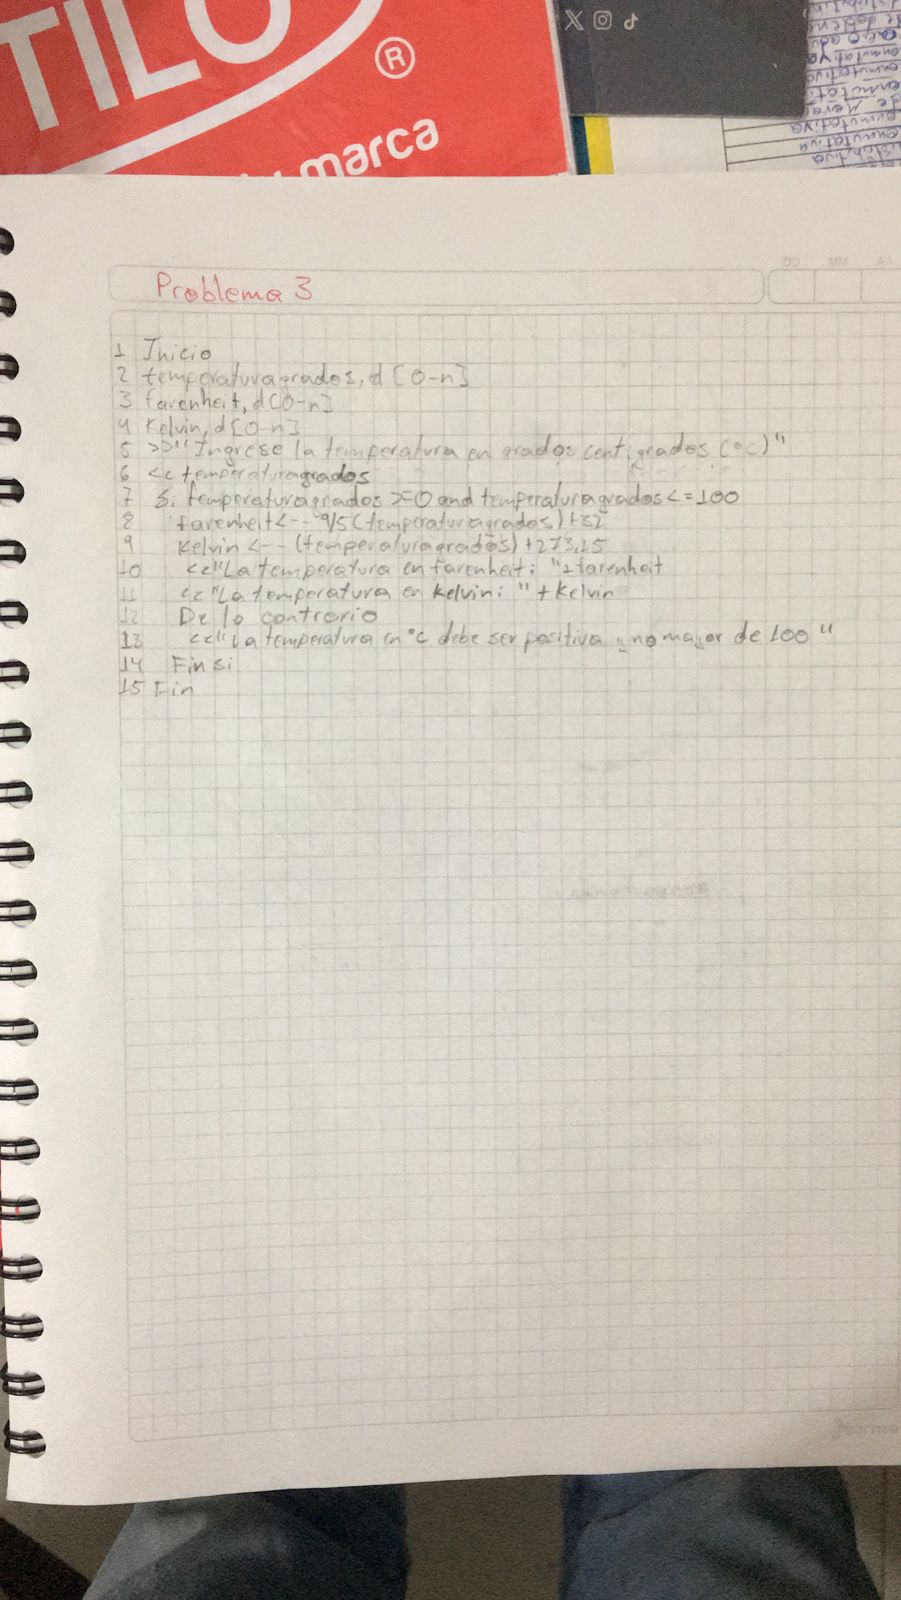 TILO
®
marca
Problema 3
DD MM AA
1 Inicio
2 temperaturagrados, d [0-n]
3 farenheit, d[0-n]
4 Kelvin, d[0-n]
5 >>"Ingrese la temperatura en grados centigrados (°c)"
6 <<temperaturagrados
7 Si temperaturagrados >=0 and temperaturagrados<=100
8 farenheit<-- 9/5(temperaturagrados)+32
9 Kelvin <-- (temperaturagrados)+273,15
10 <<"La temperatura en farenheit: "+farenheit
11 <<"La temperatura en kelvin: "+Kelvin
12 De lo contrario
13 <<"La temperatura en °c debe ser positiva y no mayor de 100"
14 Fin si
15 Fin